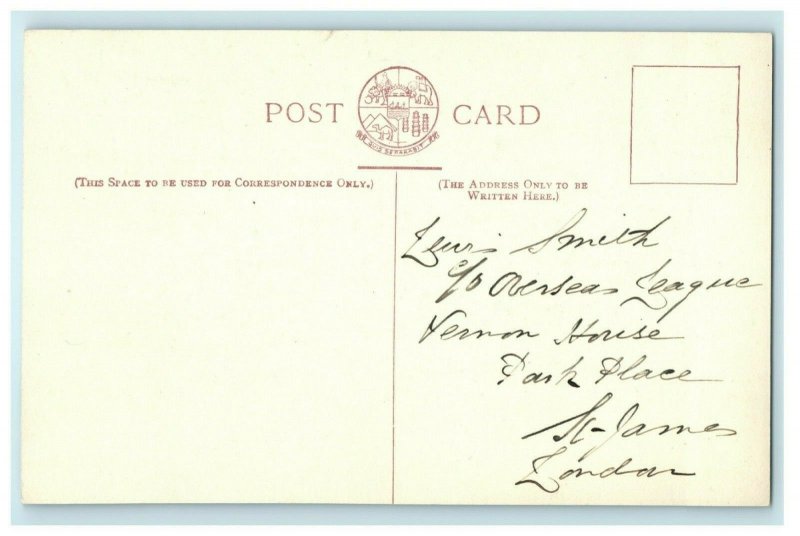 POST CARD
QUIS SEPARABIT
(THIS SPACE TO BE USED FOR CORRESPONDENCE ONLY.)
(THE ADDRESS ONLY TO BE
WRITTEN HERE.)
Lewis Smith
c/o Overseas League
Vernon House
Park Place
St-James
London